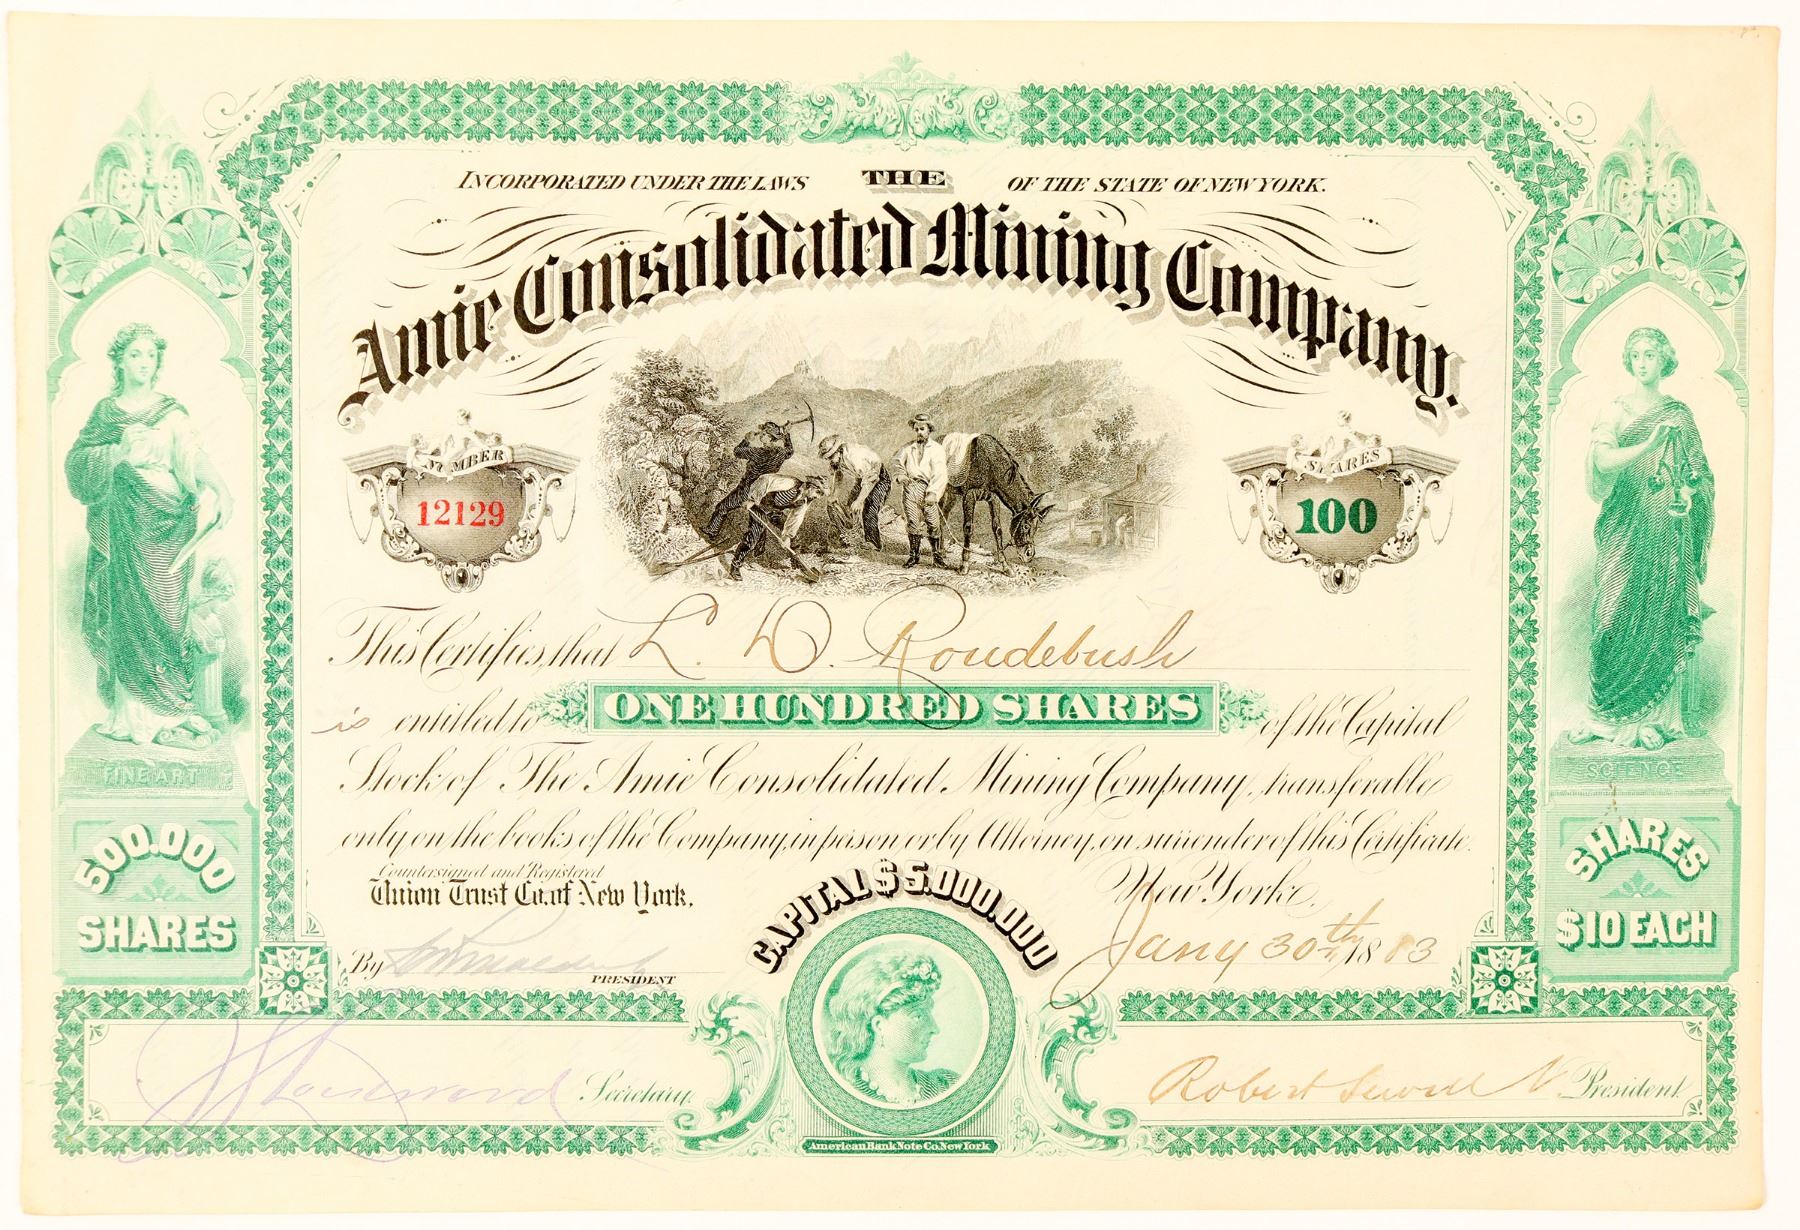 INCORPORATED UNDER THE LAWS THE OF THE STATE OF NEW YORK.
Amie Consolidated Mining Company.
NUMBER
12129
SHARES
100
This Certifies, that L. D. Roudebush
is entitled to ONE HUNDRED SHARES of the Capital
Stock of The Amie Consolidated Mining Company, transferable
only on the books of the Company, in person or by Attorney, on surrender of this Certificate.
Countersigned and Registered
Union Trust Co. of New York.
New York,
Jany 30th 1883
By
PRESIDENT
CAPITAL $5.000.000
FINE ART
500.000
SHARES
SCIENCE
SHARES
$10 EACH
Secretary.
Robert Sewell V. President.
American Bank Note Co. New York